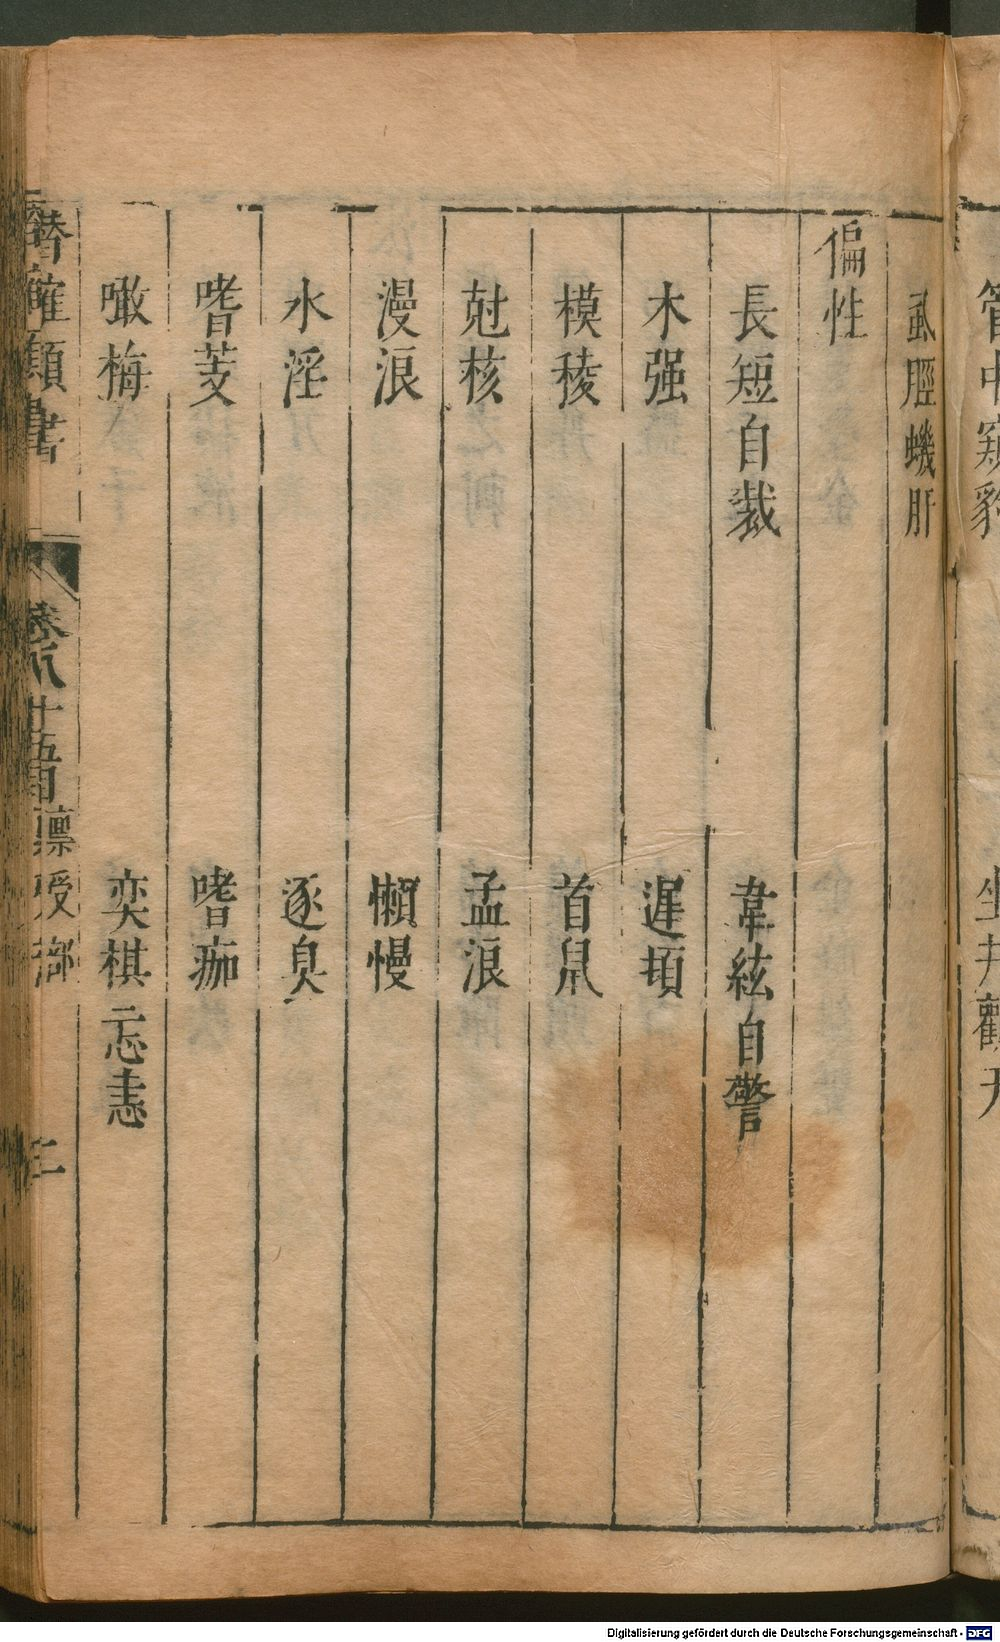 管中窺豹
坐井觀天
虱脛蟣肝
偏性
長短自裁
韋絃自警
木强
遲頓
模稜
首鼠
尅核
孟浪
漫浪
懶慢
水淫
逐臭
嗜芰
嗜痂
噉梅
奕棋忘恚
潛確類書
卷八十五目
稟受部
三
Digitalisierung gefördert durch die Deutsche Forschungsgemeinschaft - DFG